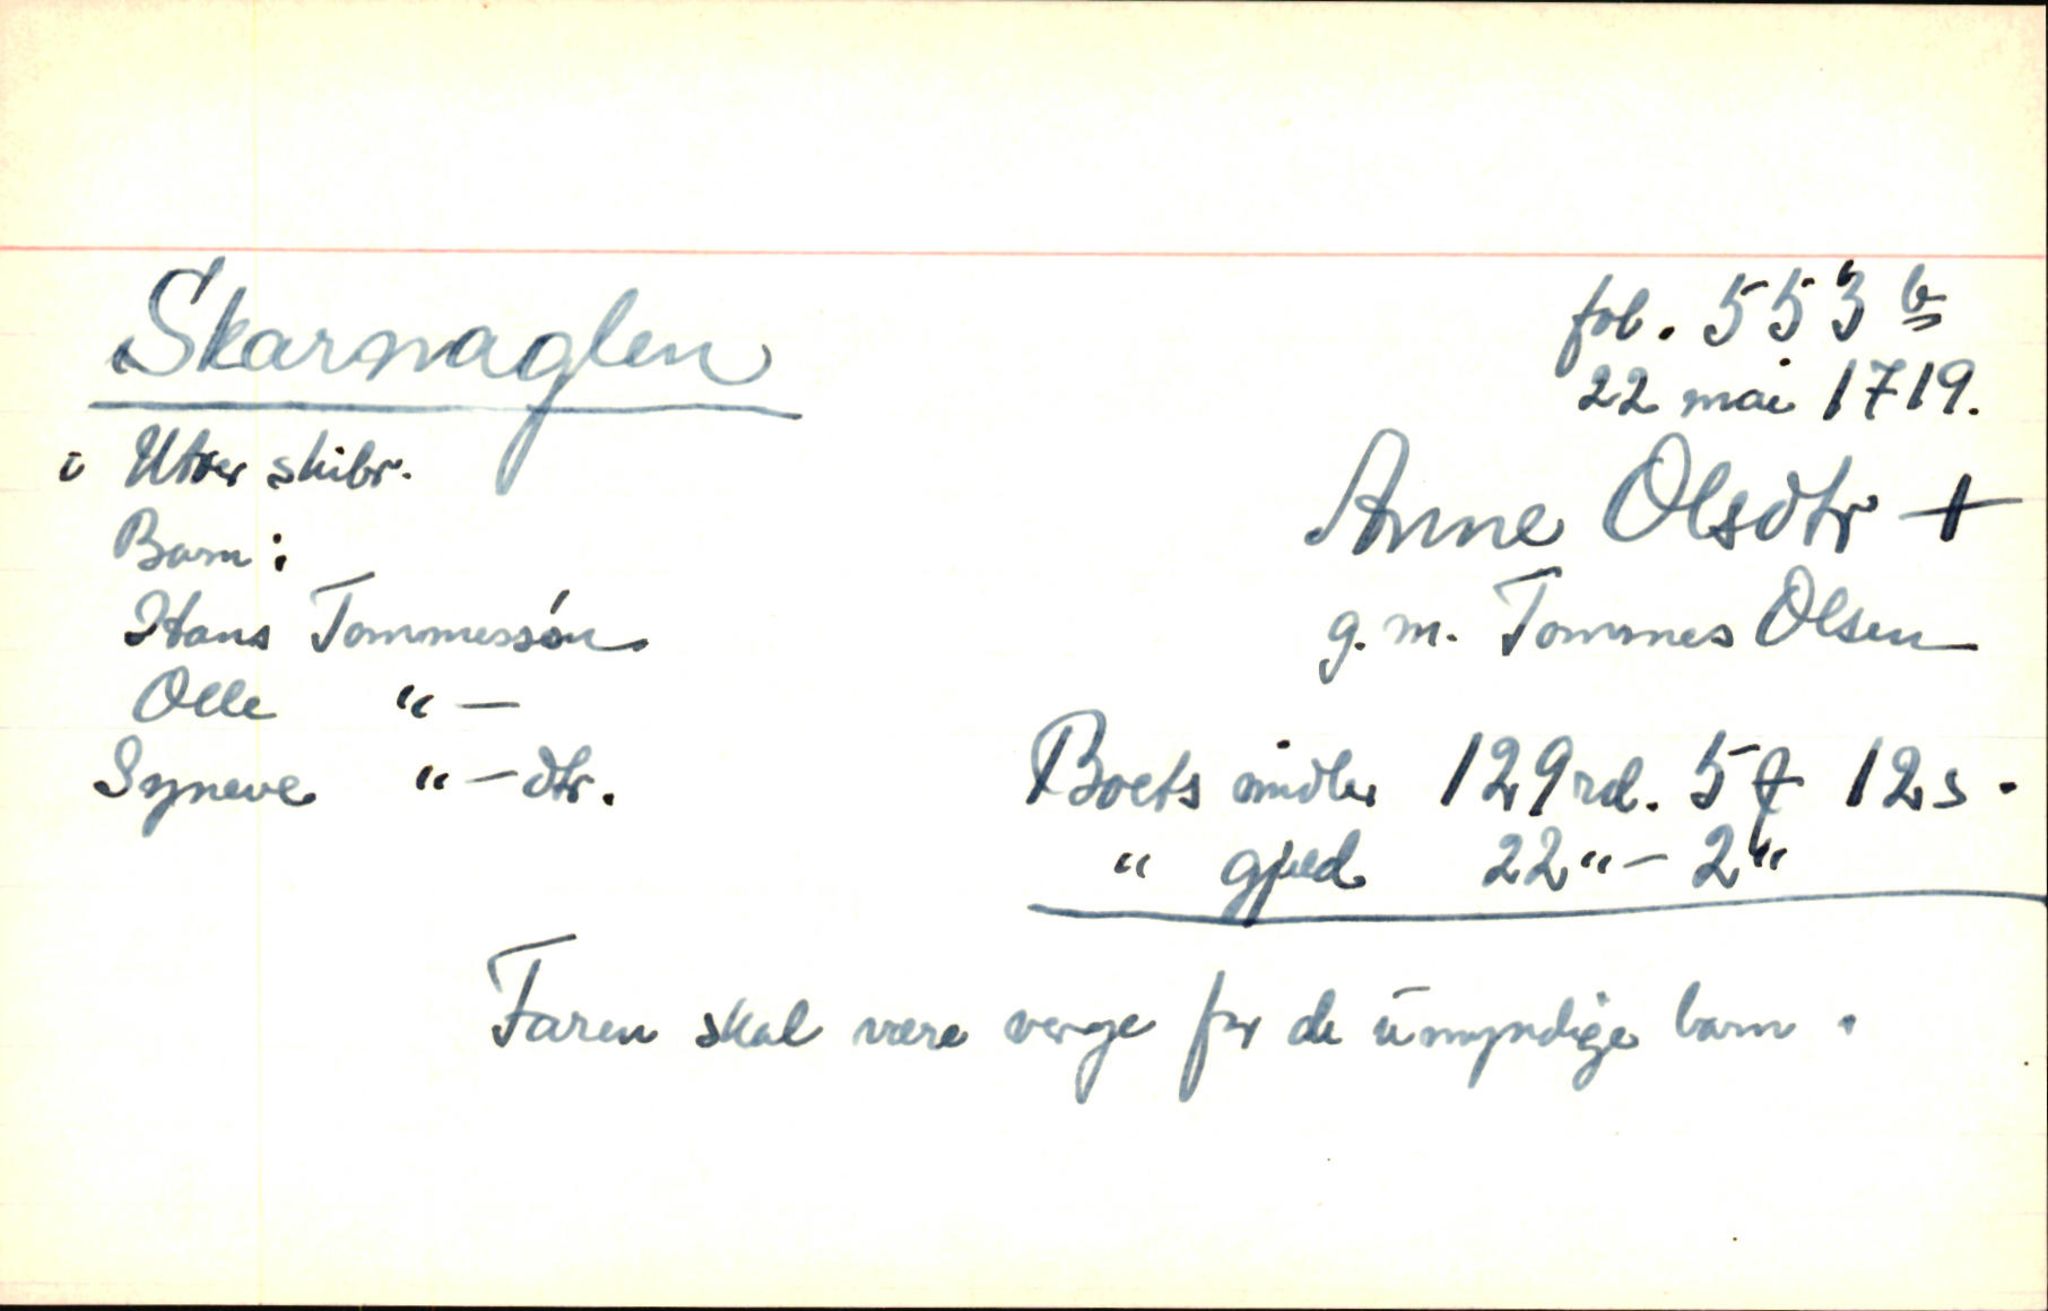 Skarnaglen
fol. 553 b
22 mai 1719.
i Utvær skibr.
Anne Olsdtr +
Barn:
g. m. Tommes Olsen
Hans Tommessøn
Olle " —
Syneve " — dtr.
Boets midler 129 rd. 5 f 12 s.
" gjeld 22 " — 2 "
Faren skal være verge for de umyndige barn.